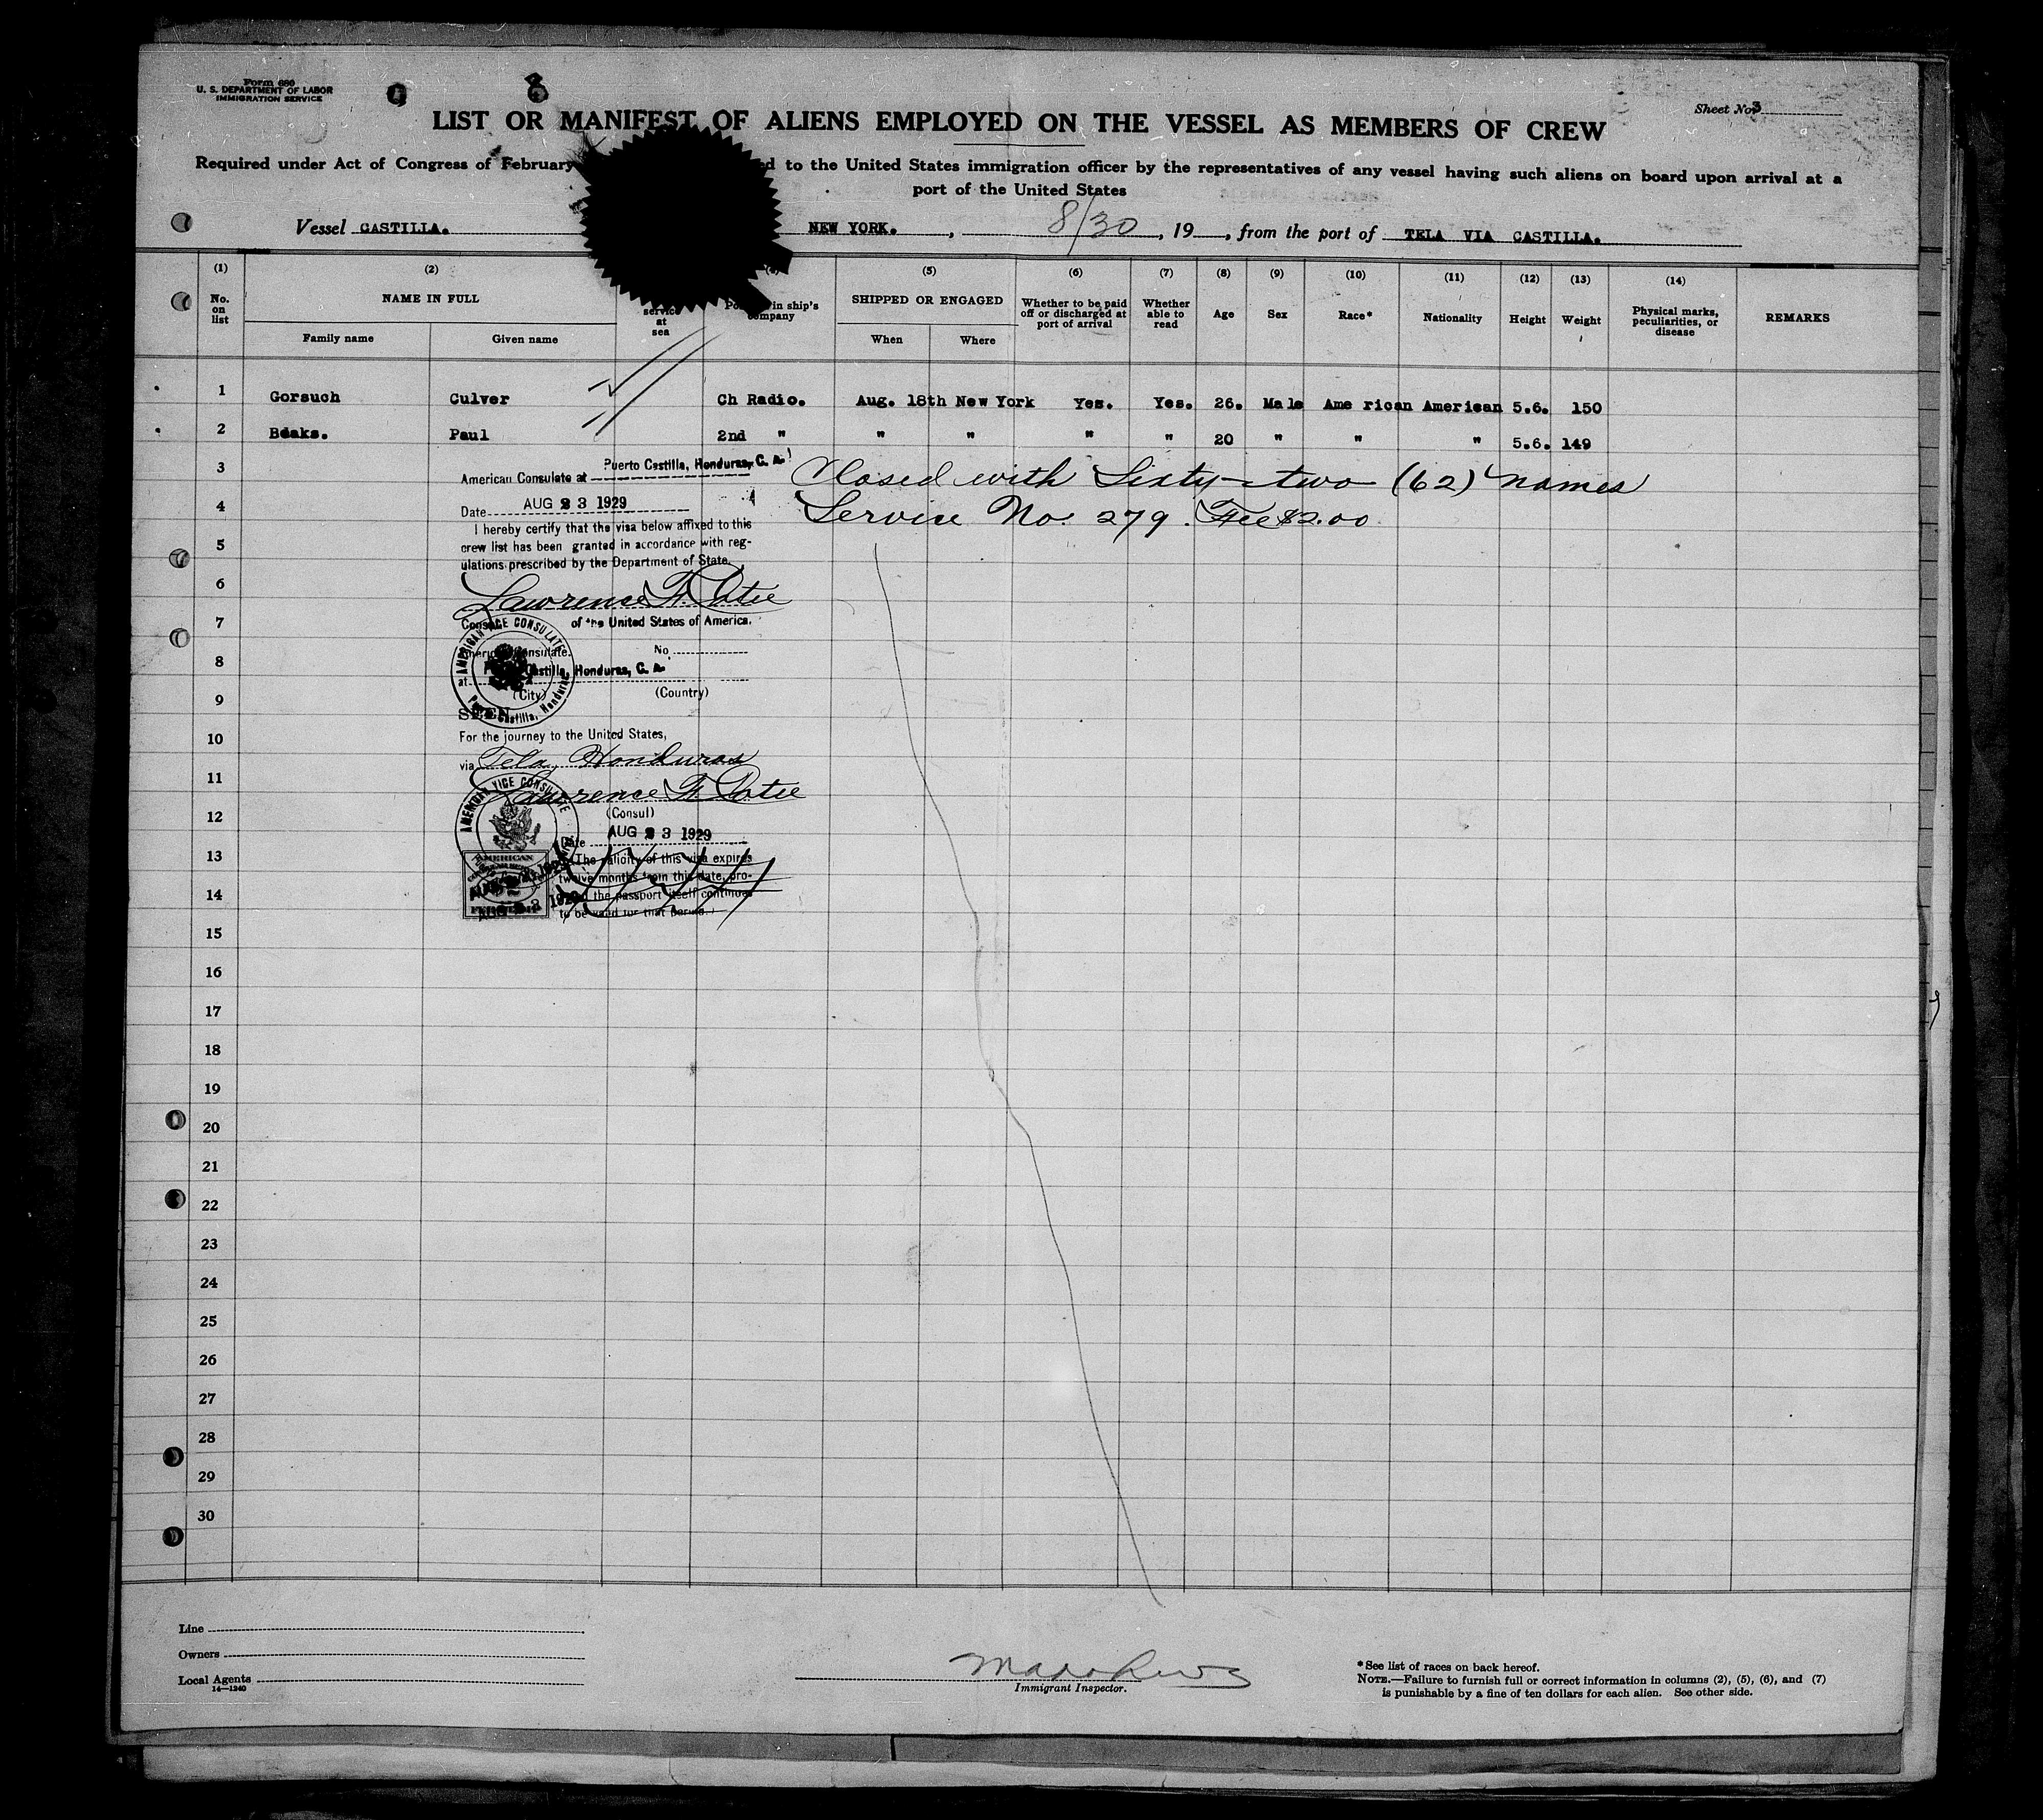 Form 680
U. S. DEPARTMENT OF LABOR
IMMIGRATION SERVICE
Sheet No. 3
LIST OR MANIFEST OF ALIENS EMPLOYED ON THE VESSEL AS MEMBERS OF CREW
Required under Act of Congress of February ed to the United States immigration officer by the representatives of any vessel having such aliens on board upon arrival at a
port of the United States
Vessel CASTILLA. NEW YORK. , 8/30 , 19 , from the port of TELA VIA CASTILLA.
(1) (2) (5) (6) (7) (8) (9) (10) (11) (12) (13) (14)
No. on list NAME IN FULL service at sea in ship's company SHIPPED OR ENGAGED Whether to be paid off or discharged at port of arrival Whether able to read Age Sex Race* Nationality Height Weight Physical marks, peculiarities, or disease REMARKS
Family name Given name When Where
1 Gorsuch Culver Ch Radio. Aug. 18th New York Yes. Yes. 26. Male Ame rican American 5.6. 150
2 Paul 2nd " " " " " 20 " " " 5.6. 149
3
American Consulate at Puerto Castilla, Honduras, C. A.
Closed with Sixty-two (62) names
4
Date AUG 23 1929
Service No. 279. Fee $2.00
I hereby certify that the visa below affixed to this
5
crew list has been granted in accordance with reg-
ulations prescribed by the Department of State.
6
Lawrence F. Cotie
7
of the United States of America.
AMERICAN VICE CONSULATE
Consulate. No
8
at Castilla, Honduras, C. A.
(City) (Country)
9
SEEN
10
For the journey to the United States,
via Tela, Honduras
11
Lawrence F. Cotie
AMERICAN VICE CONSULATE
12
(Consul)
Date AUG 23 1929
13
AMERICAN
(The validity of this visa expires
twelve months from this date, pro-
14
the passport itself continues
to be valid for that period.)
15
16
17
18
19
20
21
22
23
24
25
26
27
28
29
30
Line
Owners
Local Agents
14—1240
Immigrant Inspector.
*See list of races on back hereof.
NOTE.—Failure to furnish full or correct information in columns (2), (5), (6), and (7)
is punishable by a fine of ten dollars for each alien. See other side.